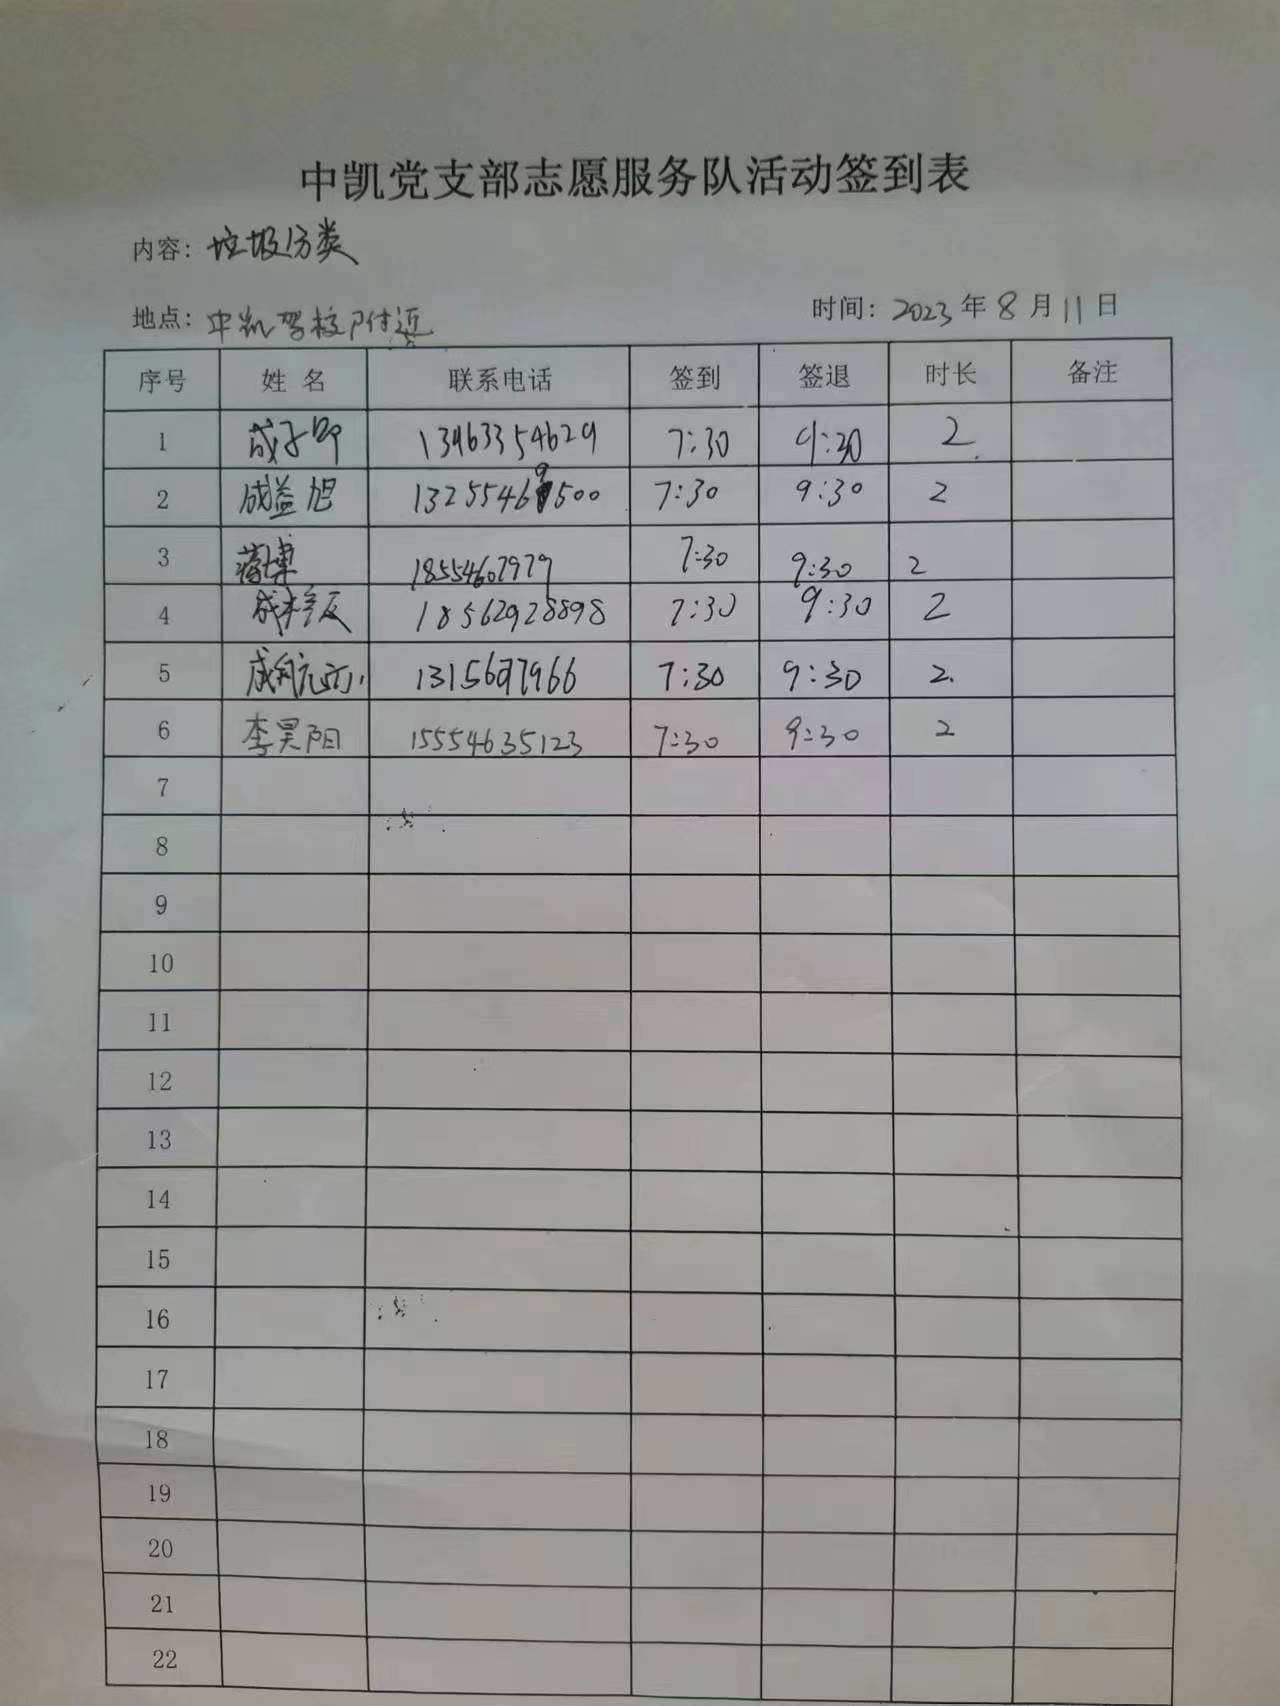 中凯党支部志愿服务队活动签到表
内容: 垃圾分类
地点: 中凯驾校附近 时间: 2023年8月11日
序号 姓名 联系电话 签到 签退 时长 备注
1 成子 13963354629 7:30 9:30 2
2 成益旭 13255469500 7:30 9:30 2
3 蒋博 18554607979 7:30 9:30 2
4 成 18562928898 7:30 9:30 2
5 成航 7:30 9:30 2
6 李昊阳 15554635123 7:30 9:30 2
7
8
9
10
11
12
13
14
15
16
17
18
19
20
21
22